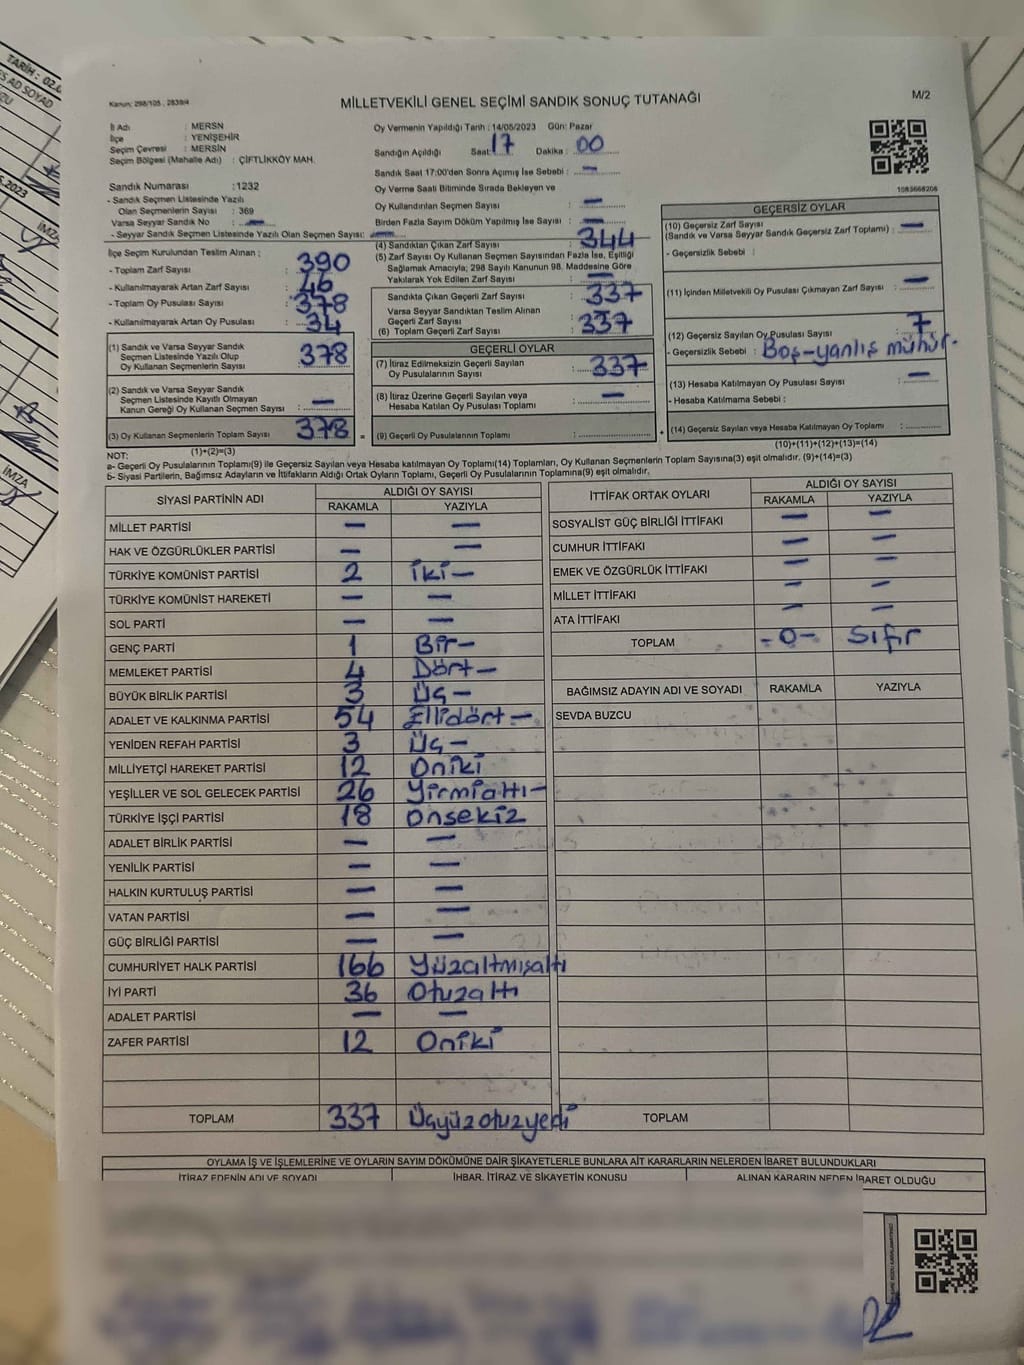 TARİH : 02.0
S AD SOYAD
ZU
5 2023
İMZA
İMZA
Kanun: 298/105 , 2839/4
MİLLETVEKİLİ GENEL SEÇİMİ SANDIK SONUÇ TUTANAĞI
M/2
İl Adı : MERSN
İlçe : YENİŞEHİR
Seçim Çevresi : MERSİN
Seçim Bölgesi (Mahalle Adı) : ÇİFTLİKKÖY MAH.
Sandık Numarası : 1232
- Sandık Seçmen Listesinde Yazılı
Olan Seçmenlerin Sayısı : 369
Varsa Seyyar Sandık No : —
- Seyyar Sandık Seçmen Listesinde Yazılı Olan Seçmen Sayısı: —
Oy Vermenin Yapıldığı Tarih : 14/05/2023 Gün: Pazar
Sandığın Açıldığı Saat: 17 Dakika : 00
Sandık Saat 17:00'den Sonra Açımış İse Sebebi : —
Oy Verme Saati Bitiminde Sırada Bekleyen ve
Oy Kullandırılan Seçmen Sayısı : —
Birden Fazla Sayım Döküm Yapılmış İse Sayısı : —
1083668208
İlçe Seçim Kurulundan Teslim Alınan ;
- Toplam Zarf Sayısı : 390
- Kullanılmayarak Artan Zarf Sayısı : 46
- Toplam Oy Pusulası Sayısı : 378
- Kullanılmayarak Artan Oy Pusulası : 34
(1) Sandık ve Varsa Seyyar Sandık
Seçmen Listesinde Yazılı Olup
Oy Kullanan Seçmenlerin Sayısı : 378
(2) Sandık ve Varsa Seyyar Sandık
Seçmen Listesinde Kayıtlı Olmayan
Kanun Gereği Oy Kullanan Seçmen Sayısı : —
(3) Oy Kullanan Seçmenlerin Toplam Sayısı : 378 =
(1)+(2)=(3)
(4) Sandıktan Çıkan Zarf Sayısı : 344
(5) Zarf Sayısı Oy Kullanan Seçmen Sayısından Fazla İse, Eşitliği
Sağlamak Amacıyla; 298 Sayılı Kanunun 98. Maddesine Göre
Yakılarak Yok Edilen Zarf Sayısı : —
Sandıkta Çıkan Geçerli Zarf Sayısı : 337
Varsa Seyyar Sandıktan Teslim Alınan
Geçerli Zarf Sayısı
(6) Toplam Geçerli Zarf Sayısı : 337
GEÇERLİ OYLAR
(7) İtiraz Edilmeksizin Geçerli Sayılan
Oy Pusulalarının Sayısı : 337
(8) İtiraz Üzerine Geçerli Sayılan veya
Hesaba Katılan Oy Pusulası Toplamı : —
(9) Geçerli Oy Pusulalarının Toplamı : +
GEÇERSİZ OYLAR
(10) Geçersiz Zarf Sayısı
(Sandık ve Varsa Seyyar Sandık Geçersiz Zarf Toplamı) : —
- Geçersizlik Sebebi :
(11) İçinden Milletvekili Oy Pusulası Çıkmayan Zarf Sayısı : —
(12) Geçersiz Sayılan Oy Pusulası Sayısı : 7
- Geçersizlik Sebebi : Boş-yanlış mühür.
(13) Hesaba Katılmayan Oy Pusulası Sayısı : —
- Hesaba Katılmama Sebebi :
(14) Geçersiz Sayılan veya Hesaba Katılmayan Oy Toplamı :
(10)+(11)+(12)+(13)=(14)
NOT:
a- Geçerli Oy Pusulalarının Toplamı(9) ile Geçersiz Sayılan veya Hesaba katılmayan Oy Toplamı(14) Toplamları, Oy Kullanan Seçmenlerin Toplam Sayısına(3) eşit olmalıdır. (9)+(14)=(3)
b- Siyasi Partilerin, Bağımsız Adayların ve İttifakların Aldığı Ortak Oyların Toplamı, Geçerli Oy Pusulalarının Toplamına(9) eşit olmalıdır.
SİYASİ PARTİNİN ADI ALDIĞI OY SAYISI
RAKAMLA YAZIYLA
MİLLET PARTİSİ — —
HAK VE ÖZGÜRLÜKLER PARTİSİ — —
TÜRKİYE KOMÜNİST PARTİSİ 2 iki —
TÜRKİYE KOMÜNİST HAREKETİ — —
SOL PARTİ — —
GENÇ PARTİ 1 Bir —
MEMLEKET PARTİSİ 4 Dört —
BÜYÜK BİRLİK PARTİSİ 3 Üç —
ADALET VE KALKINMA PARTİSİ 54 Ellidört —
YENİDEN REFAH PARTİSİ 3 Üç —
MİLLİYETÇİ HAREKET PARTİSİ 12 Oniki
YEŞİLLER VE SOL GELECEK PARTİSİ 26 Yirmialtı —
TÜRKİYE İŞÇİ PARTİSİ 18 Onsekiz
ADALET BİRLİK PARTİSİ — —
YENİLİK PARTİSİ — —
HALKIN KURTULUŞ PARTİSİ — —
VATAN PARTİSİ — —
GÜÇ BİRLİĞİ PARTİSİ — —
CUMHURİYET HALK PARTİSİ 166 Yüzaltmışaltı
İYİ PARTİ 36 Otuzaltı
ADALET PARTİSİ — —
ZAFER PARTİSİ 12 Oniki
TOPLAM 337 Üçyüzotuzyedi
İTTİFAK ORTAK OYLARI ALDIĞI OY SAYISI
RAKAMLA YAZIYLA
SOSYALİST GÜÇ BİRLİĞİ İTTİFAKI — —
CUMHUR İTTİFAKI — —
EMEK VE ÖZGÜRLÜK İTTİFAKI — —
MİLLET İTTİFAKI — —
ATA İTTİFAKI — —
TOPLAM -0- Sıfır
BAĞIMSIZ ADAYIN ADI VE SOYADI RAKAMLA YAZIYLA
SEVDA BUZCU
TOPLAM
OYLAMA İŞ VE İŞLEMLERİNE VE OYLARIN SAYIM DÖKÜMÜNE DAİR ŞİKAYETLERLE BUNLARA AİT KARARLARIN NELERDEN İBARET BULUNDUKLARI
İTİRAZ EDENİN ADI VE SOYADI İHBAR, İTİRAZ VE ŞİKAYETİN KONUSU ALINAN KARARIN NEDEN İBARET OLDUĞU